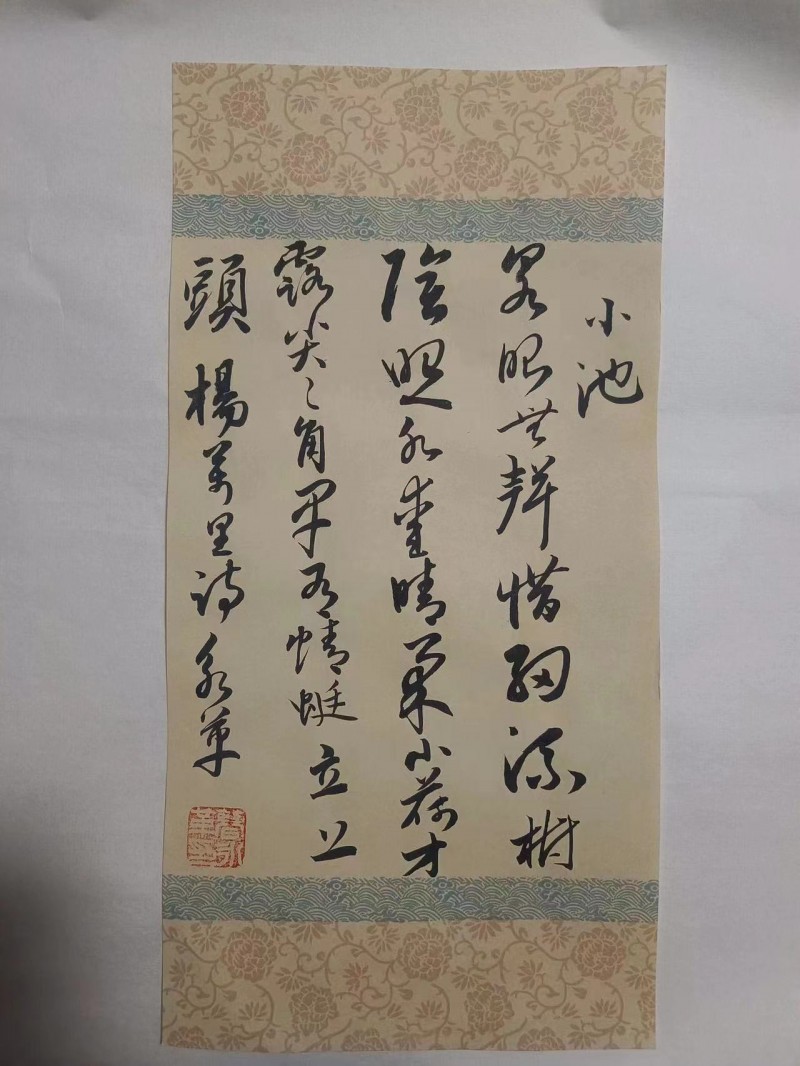 小池
泉眼無聲惜細流樹
陰照水愛晴柔小荷才
露尖〻角早有蜻蜓立上
頭 楊萬里詩